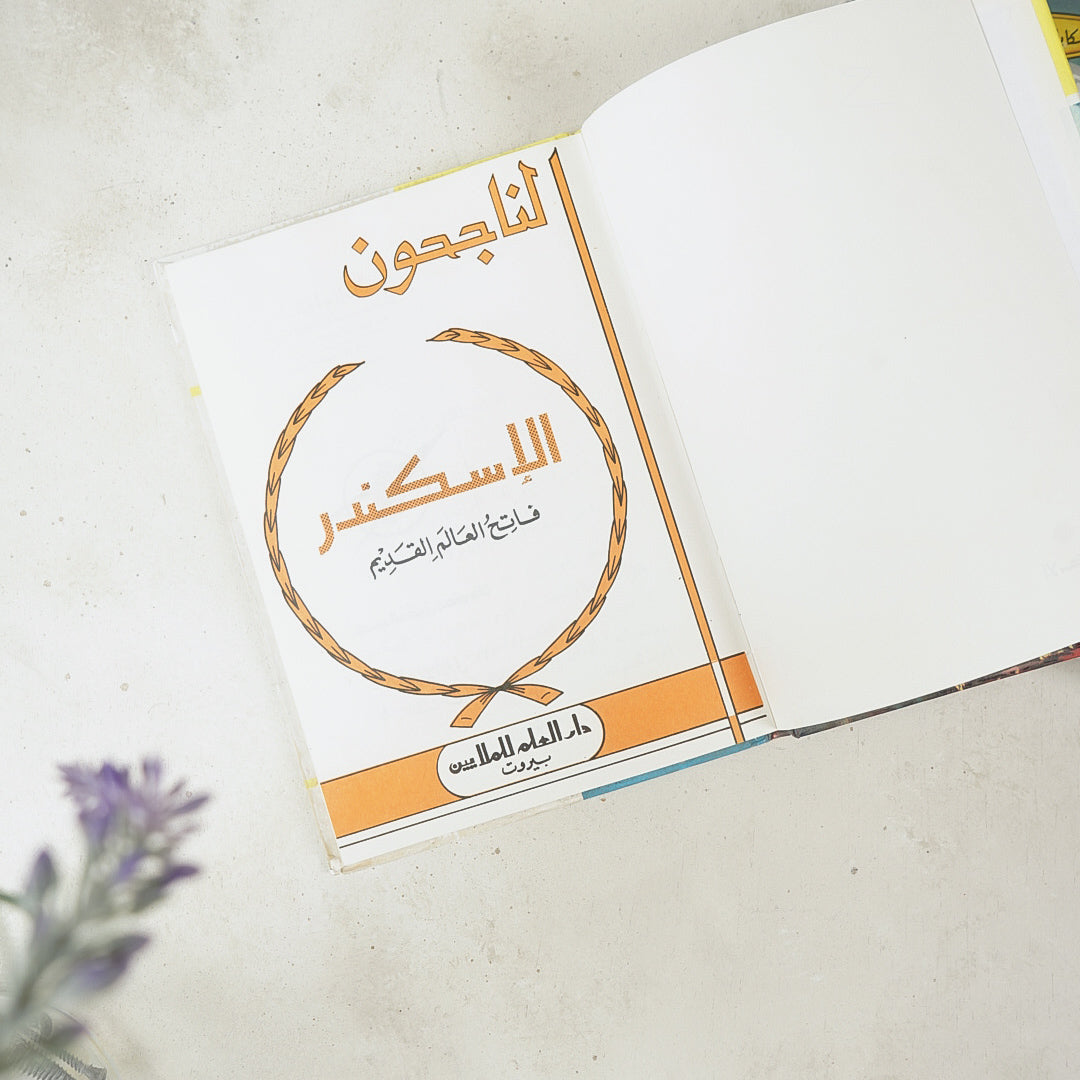 الناجحون
الإسكندر
فَاتِحُ العَالَمِ القَدِيْم
دار العلم للملايين
بيروت